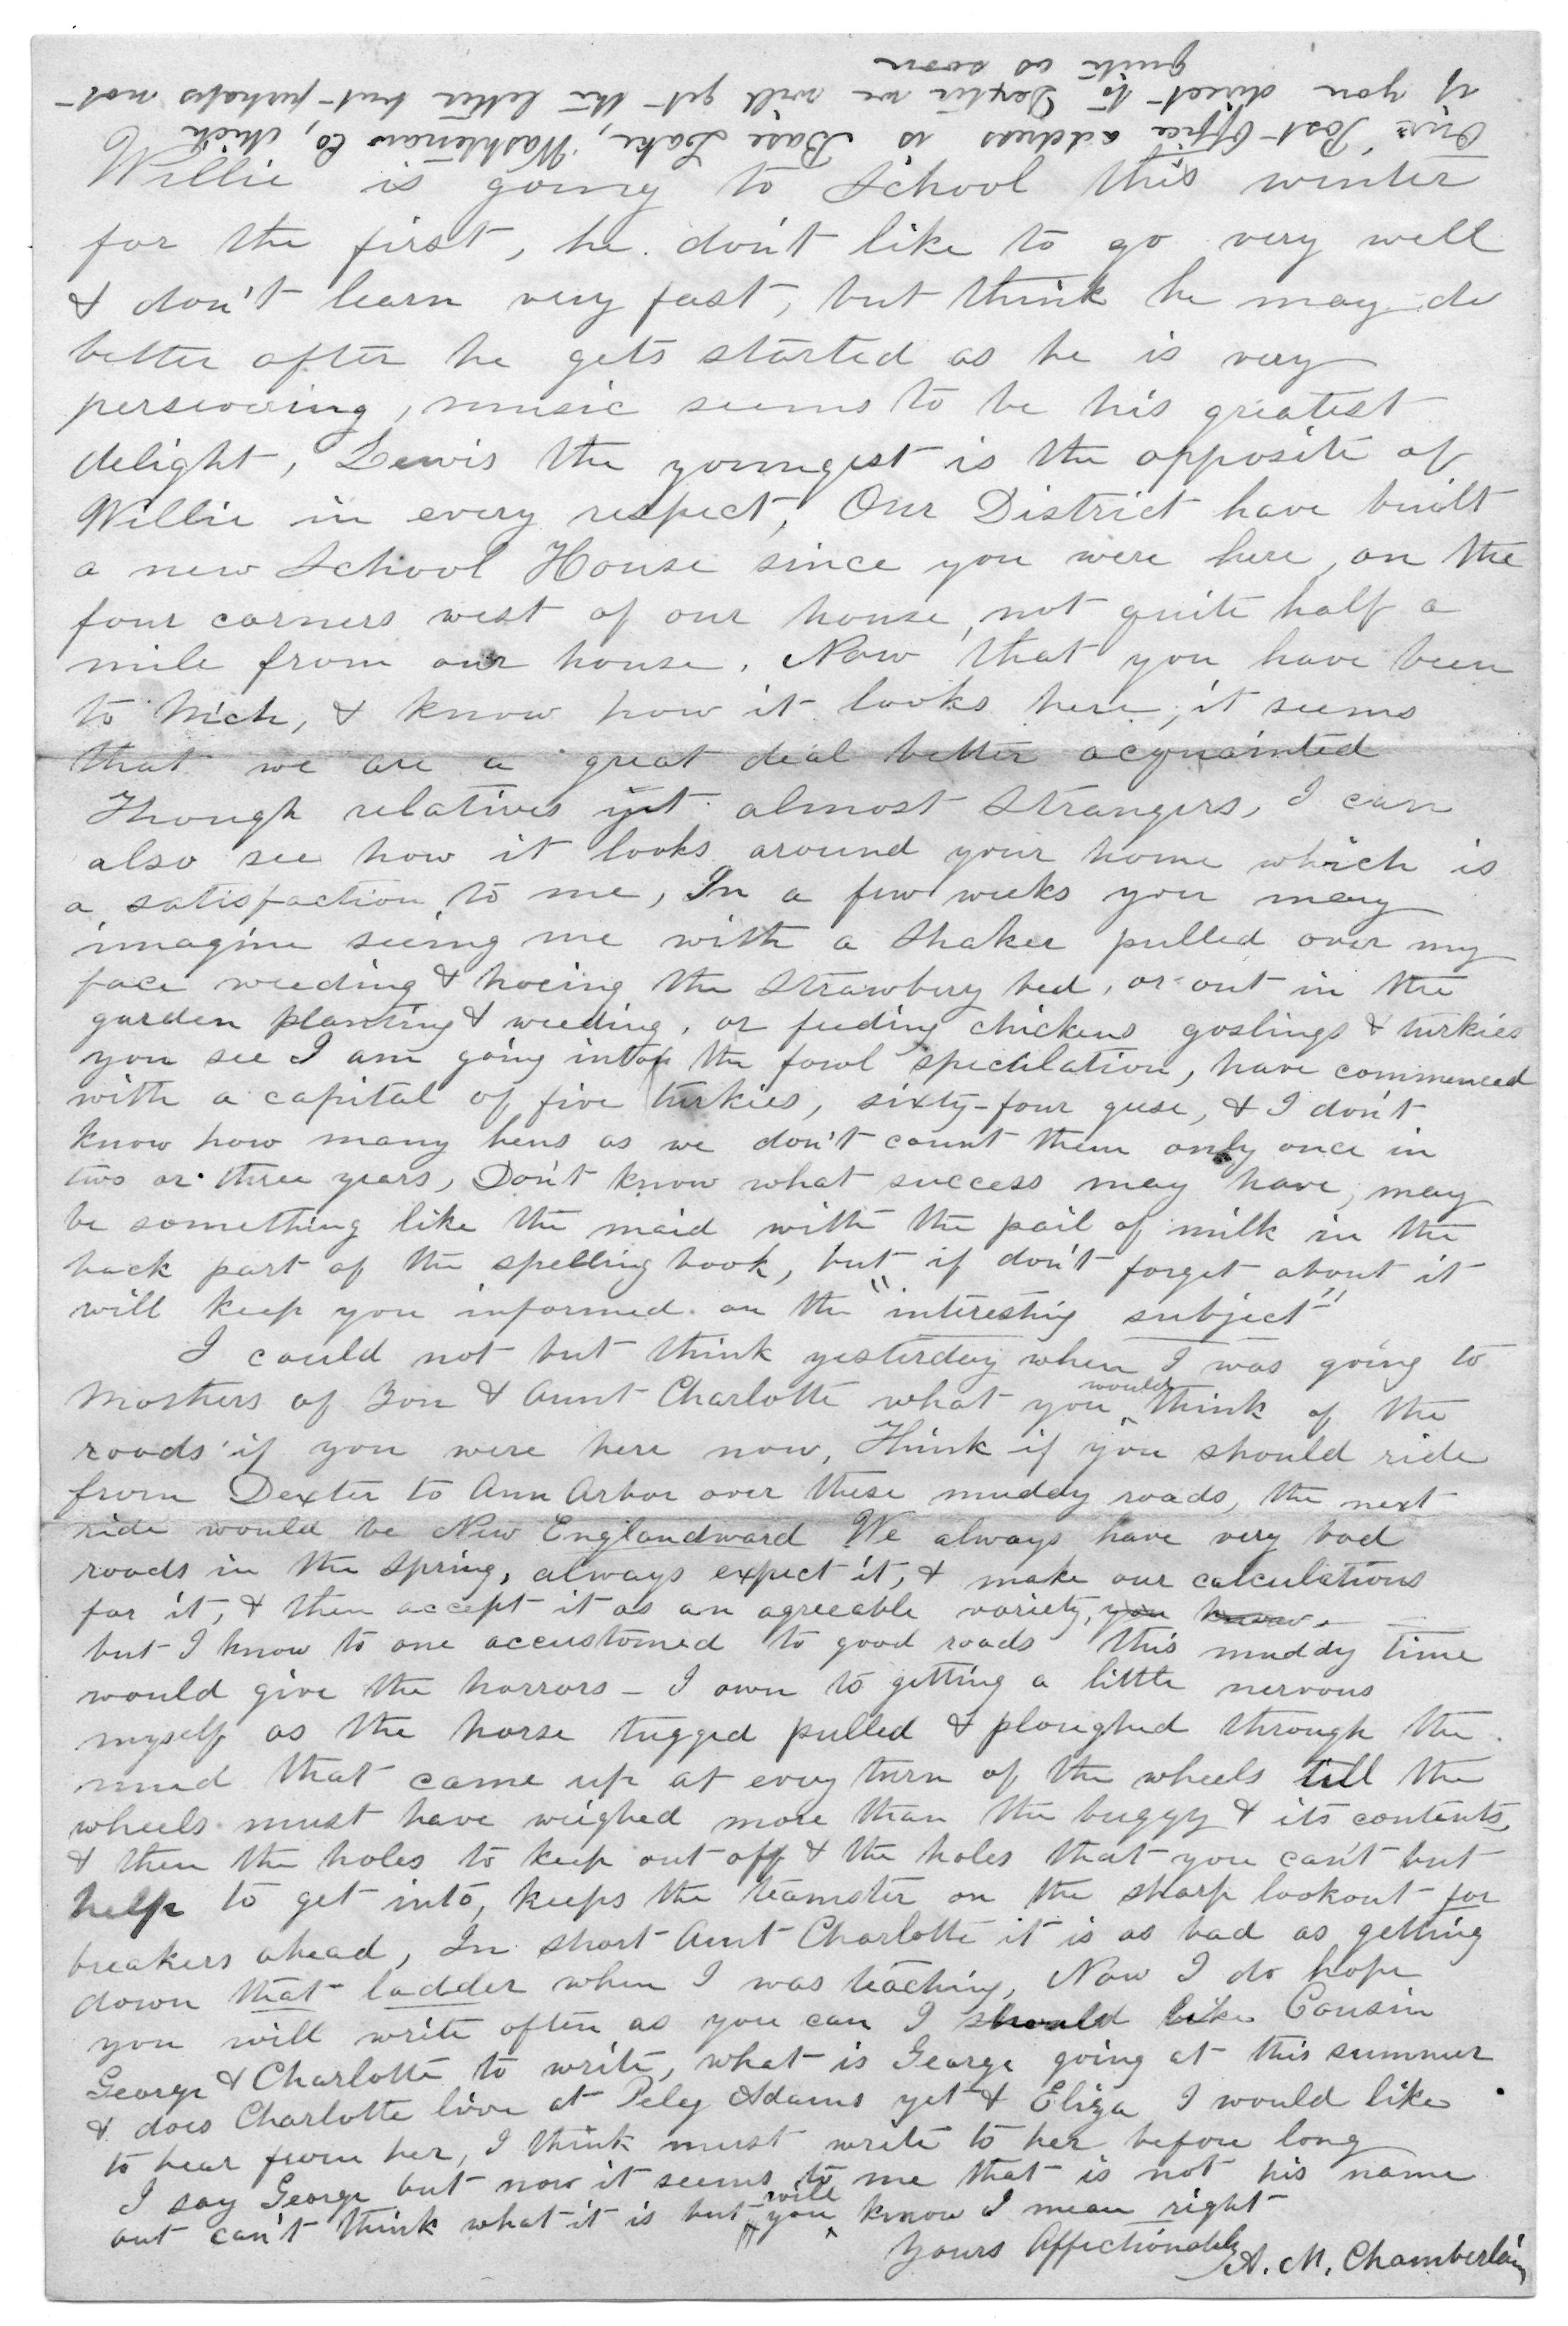 Our Post-Office address is Base Lake, Washtenaw Co, Mich
if you direct to Dexter we will get the letter but perhaps not
quite as soon
Willie is going to School this winter
for the first, he don't like to go very well
& don't learn very fast, but think he may do
better after he gets started as he is very
persevering, music seems to be his greatest
delight, Lewis the youngest is the opposite of
Willie in every respect, Our District have built
a new School House since you were here, on the
four corners west of our house, not quite half a
mile from our house. Now that you have been
to Mich, & know how it looks here, it seems
that we are a great deal better acquainted
Though relatives yet almost Strangers, I can
also see how it looks around your home which is
a satisfaction to me, In a few weeks you may
imagine seeing me with a Shaker pulled over my
face weeding & hoeing the Strawbery bed, or out in the
garden planting & weeding, or feeding chickens goslings & turkies
you see I am going into the fowl speculation, have commenced
with a capital of five turkies, sixty-four geese, & I don't
know how many hens as we don't count them only once in
two or three years, Don't know what success may have, may
be something like the maid with the pail of milk in the
back part of the spelling book, but if don't forget about it
will keep you informed on the "interesting subject"
I could not but think yesterday when I was going to
Mothers of You & Aunt Charlotte what you would think of the
roads if you were here now, Think if you should ride
from Dexter to Ann Arbor over these muddy roads, the next
ride would be New Englandward We always have very bad
roads in the Spring, always expect it, & make our calculations
for it, & then accept it as an agreeable variety, you know.
but I know to one accustomed to good roads this muddy time
would give the horrors - I own to getting a little nervous
myself as the horse tugged pulled & ploughed through the
mud that came up at every turn of the wheels till the
wheels must have weighed more than the buggy & its contents,
& then the holes to keep out off & the holes that you can't but
help to get into, keeps the teamster on the sharp lookout for
breakers ahead, In short Aunt Charlotte it is as bad as getting
down that ladder when I was teaching, Now I do hope
you will write often as you can I should like Cousin
George & Charlotte to write, what is George going at this summer
& does Charlotte live at Peleg Adams yet & Eliza I would like
to hear from her, I think must write to her before long
I say George but now it seems to me that is not his name
but can't think what it is but you will know I mean right
Yours Affectionately A. M. Chamberlain